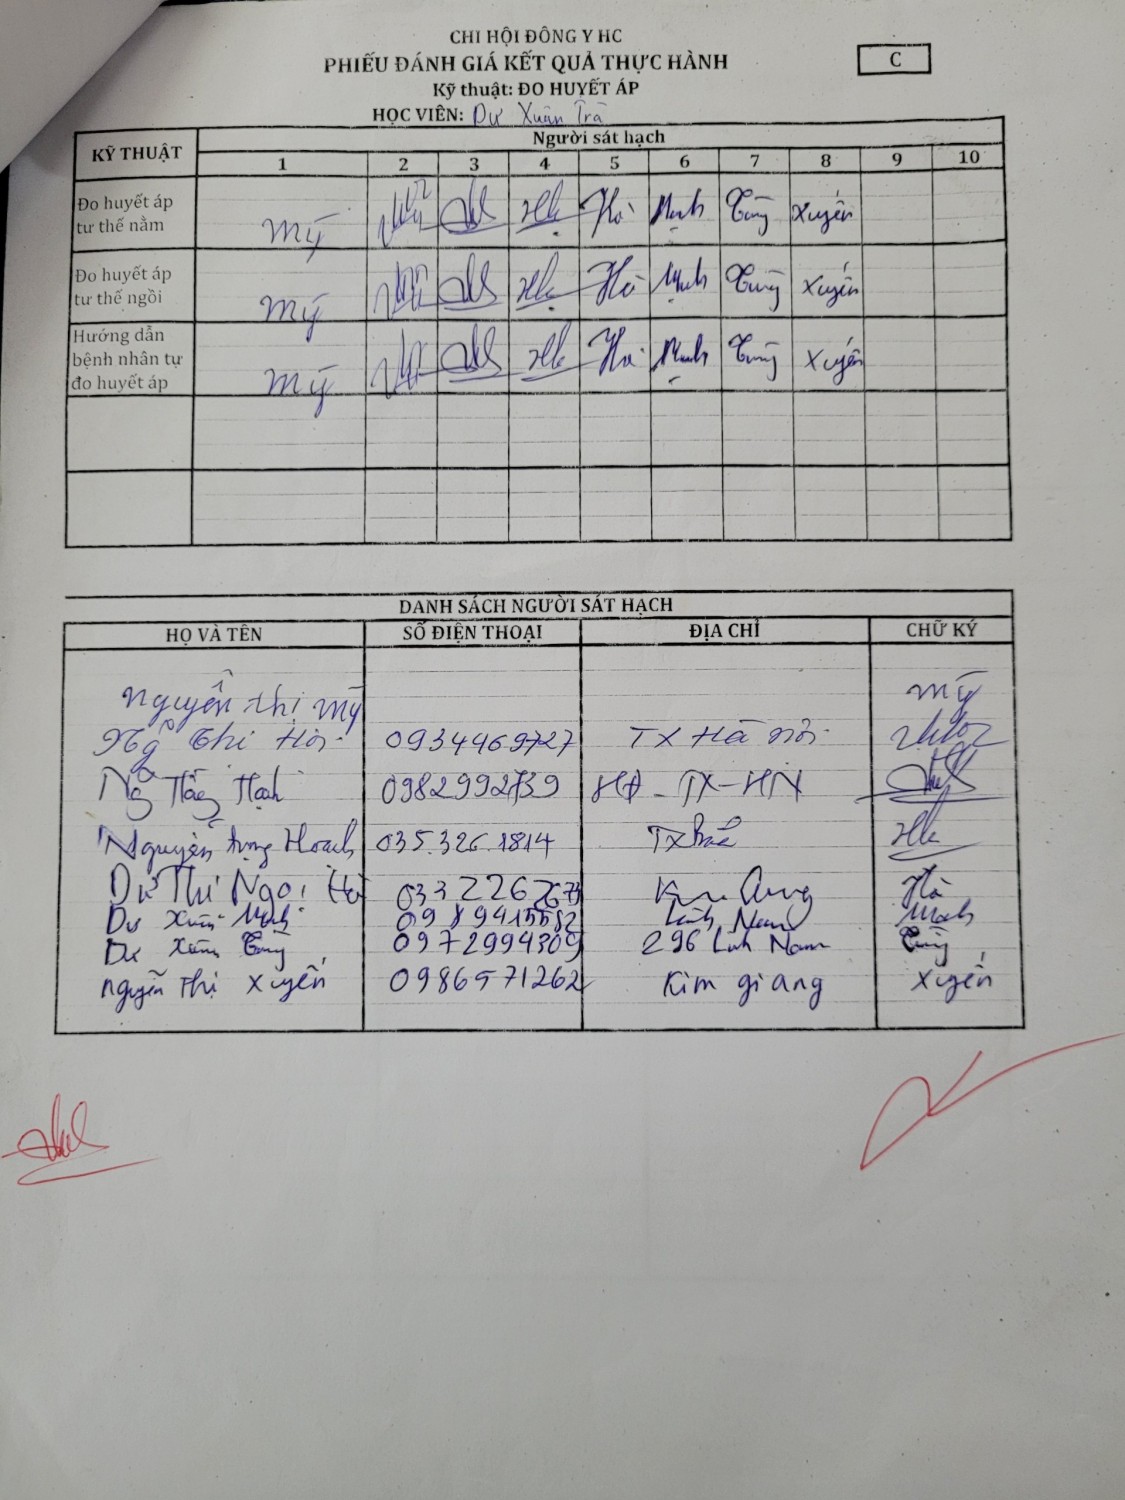 CHI HỘI ĐÔNG Y HC
PHIẾU ĐÁNH GIÁ KẾT QUẢ THỰC HÀNH
C
Kỹ thuật: ĐO HUYẾT ÁP
HỌC VIÊN: Dư Xuân Trà
KỸ THUẬT
Người sát hạch
1 2 3 4 5 6 7 8 9 10
Đo huyết áp
tư thế nằm
Mỹ Hà Mạnh Tùng Xuyến
Đo huyết áp
tư thế ngồi
Mỹ Hà Mạnh Tùng Xuyến
Hướng dẫn
bệnh nhân tự
đo huyết áp
Mỹ Hà Mạnh Tùng Xuyến
DANH SÁCH NGƯỜI SÁT HẠCH
HỌ VÀ TÊN SỐ ĐIỆN THOẠI ĐỊA CHỈ CHỮ KÝ
Nguyễn Thị Mỹ Mỹ
Ngô Thị 0934469727 TX Hà Nội
0982992739 HĐ - TX - HN
Nguyễn trọng Hoạch 035.326.1814 TX
Dư Thị Ngọc Hà 033226 Hà
Dư Xuân Mạnh 0989415582 Lĩnh Nam Mạnh
Dư Xuân Tùng 0972994309 296 Lĩnh Nam Tùng
Nguyễn Thị Xuyến 0986571262 Kim giang Xuyến